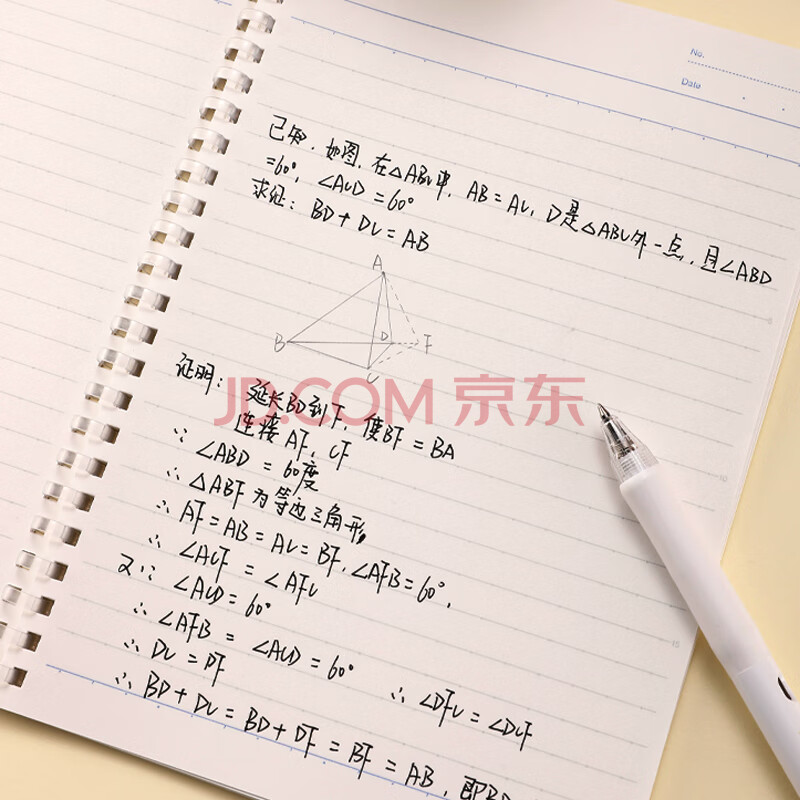 No.
Date
已知,如图,在△ABC中,AB=AC,D是△ABC外一点,且∠ABD
=60°,∠ACD=60°
求证:BD+DC=AB
A
B
D
F
C
证明:延长BD到F,使BF=BA
JD.COM 京东
连接AF,CF
∵ ∠ABD=60度
∴ △ABF为等边三角形,
∴ AF=AB=AC=BF,∠AFB=60°,
∴ ∠ACF=∠AFC
又∵ ∠ACD=60°
∴ ∠AFB=∠ACD=60°
∴ ∠DFC=∠DCF
∴ DC=DF
∴ BD+DC=BD+DF=BF=AB,即BD
5
10
15